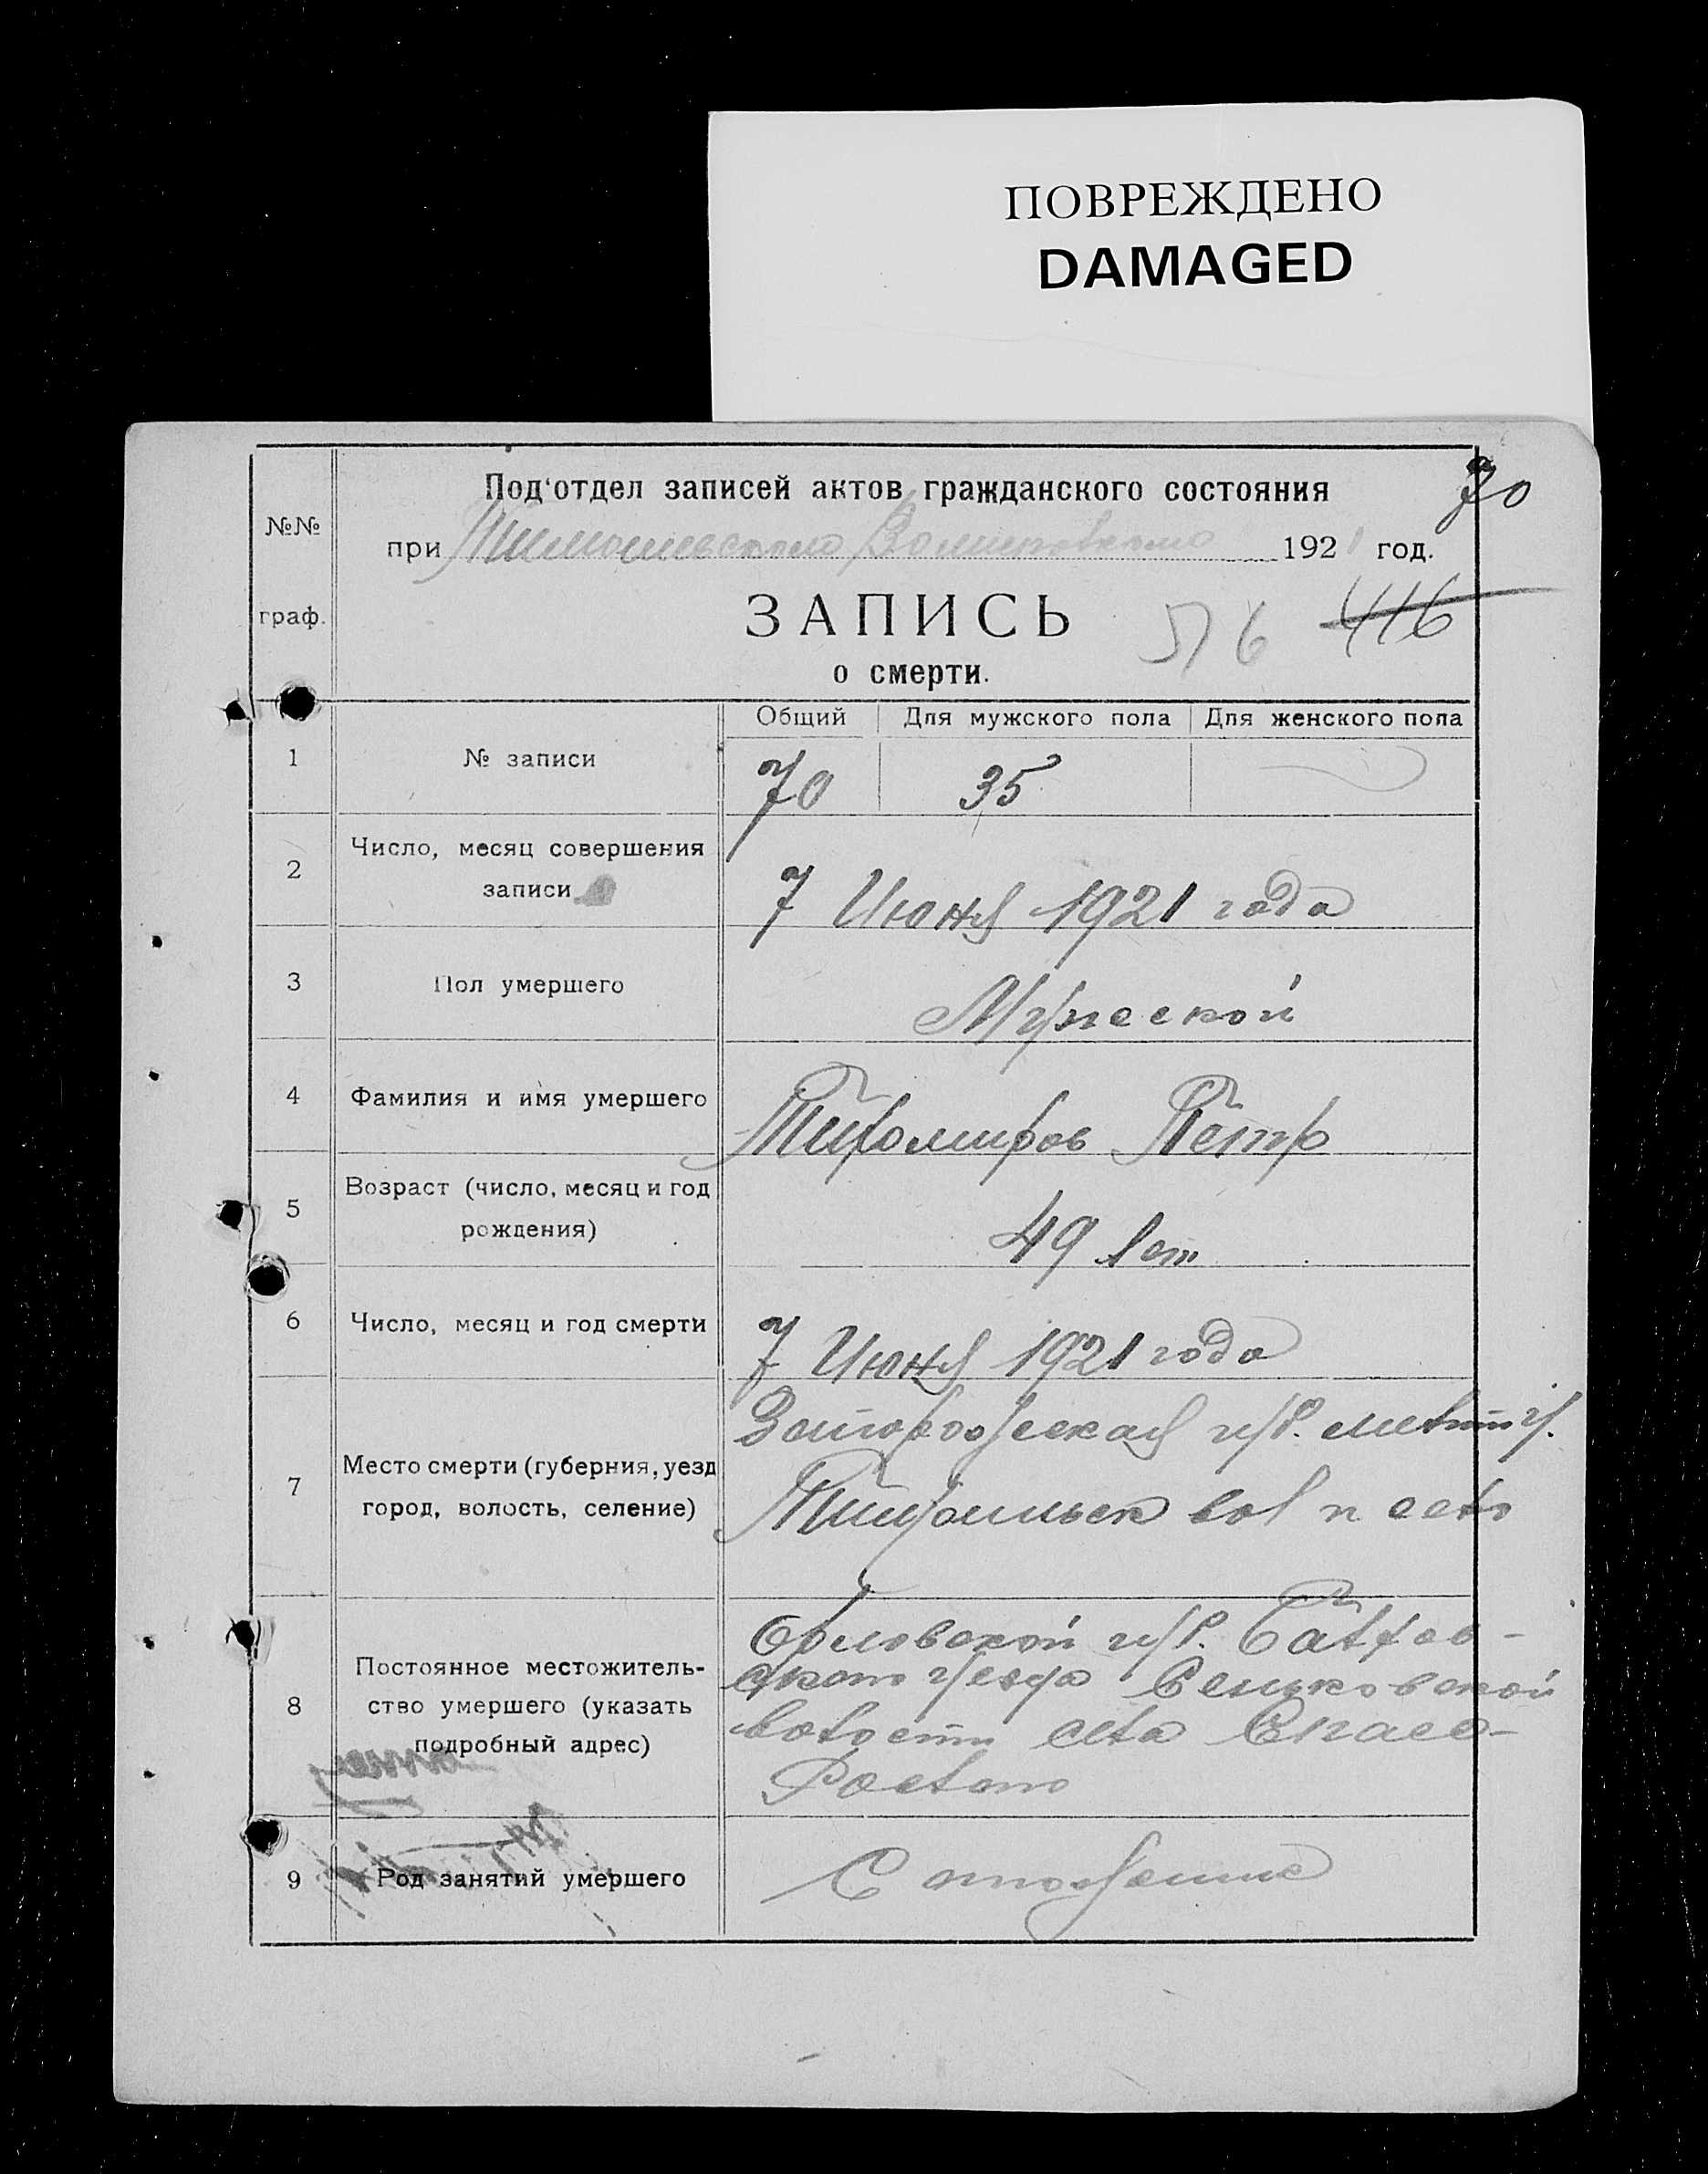 ПОВРЕЖДЕНО
DAMAGED
70
№№
граф.
Под'отдел записей актов гражданского состояния
при 1921 год.
ЗАПИСЬ
о смерти.
516 416
Общий Для мужского пола Для женского пола
1 № записи 70 35
2 Число, месяц совершения
записи
7 Июня 1921 года
3 Пол умершего Мужеской
4 Фамилия и имя умершего Тихомиров Петр
5 Возраст (число, месяц и год
рождения)
49 лет
6 Число, месяц и год смерти 7 Июня 1921 года
Запорожская губ. мелит у.
7 Место смерти (губерния, уезд
город, волость, селение)
вол и село
Орловской губ.
8 Постоянное местожитель-
ство умершего (указать
подробный адрес)
ского уезда
волости села Спасс-
9 Род занятий умершего